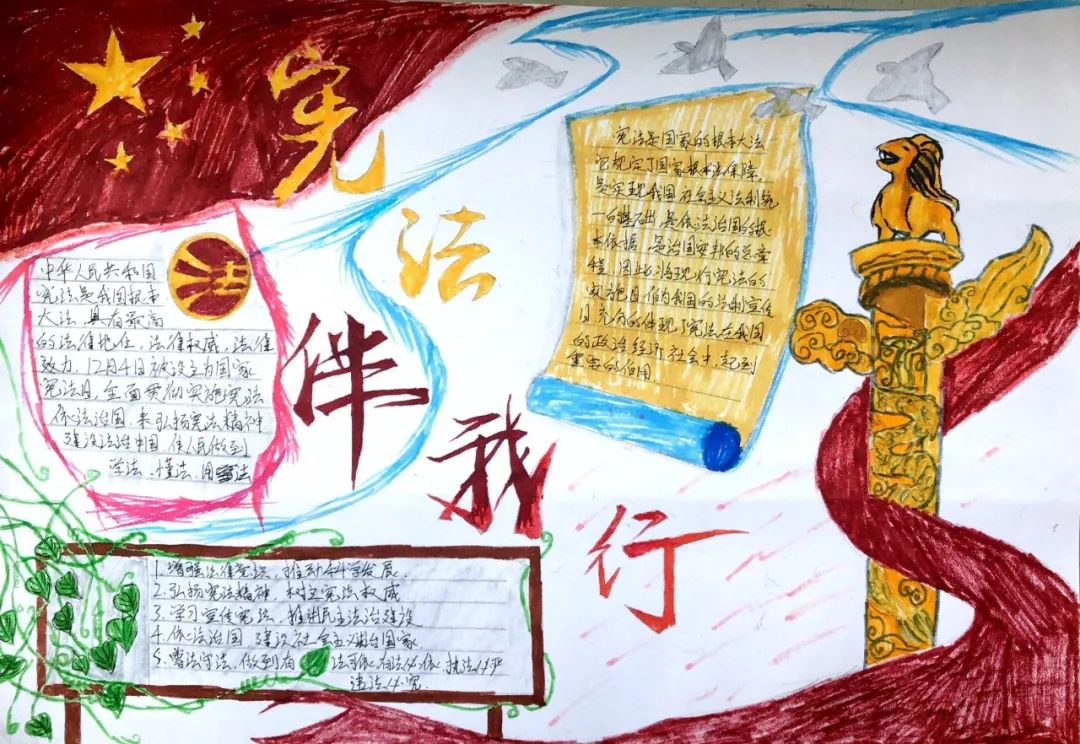 宪法伴我行
中华人民共和国
宪法是我国根本
大法 具有最高
的法律地位、法律权威、法律
效力，12月4日被设立为国家
宪法日，全面贯彻实施宪法
依法治国，来弘扬宪法精神
建设法治中国，使人民做到
学法、懂法、用法
法
宪法是国家的根本大法
它规定了国家根本法保障，
是实现我国社会主义法制统
一的基础，是依法治国的根
本依据，是治国安邦的总章
程，因此，现行宪法的
实施日作为我国的法制宣传
日充分的体现了宪法在我国
的政治经济社会中，起到
重要的作用
1.增强法律意识，推动科学发展.
2.弘扬宪法精神 树立宪法权威
3.学习宣传宪法，推进民主法治建设
4.依法治国 建设社会主义法治国家
5.尊法守法，做到有法可依，有法必依，执法必严
违法必究.